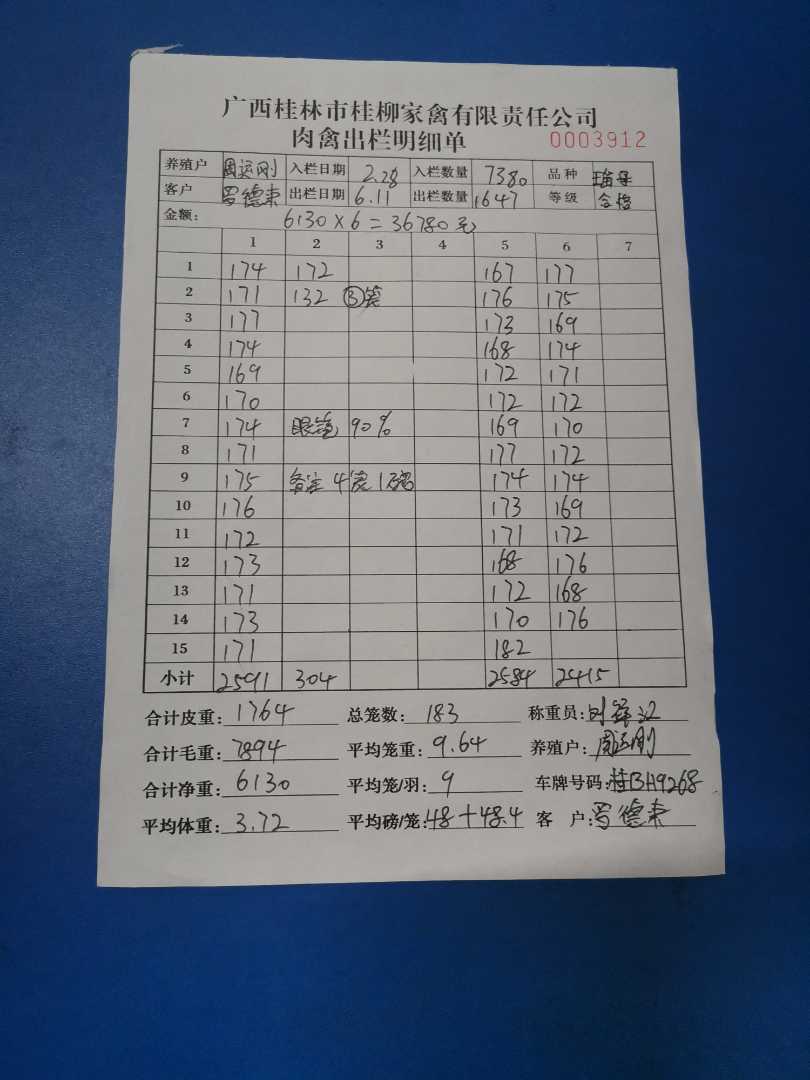 广西桂林市桂柳家禽有限责任公司
肉禽出栏明细单 0003912
养殖户 周运刚 入栏日期 2.28 入栏数量 7380 品种
客户 罗德东 出栏日期 6.11 出栏数量 1647 等级 合格
金额: 6130×6=36780元
1 2 3 4 5 6 7
1 174 172 167 177
2 171 132 ③笼 176 175
3 177 173 169
4 174 168 174
5 169 172 171
6 170 172 172
7 174 眼镜 90% 169 170
8 171 177 172
9 175 备注 4笼1磅 174 174
10 176 173 169
11 172 171 172
12 173 168 176
13 171 172 168
14 173 170 176
15 171 182
小计 2591 304 2584 2415
合计皮重: 1764 总笼数: 183 称重员:
合计毛重: 7894 平均笼重: 9.64 养殖户: 周运刚
合计净重: 6130 平均笼/羽: 9 车牌号码: 桂BH9268
平均体重: 3.72 平均磅/笼: 48+48.4 客 户: 罗德东